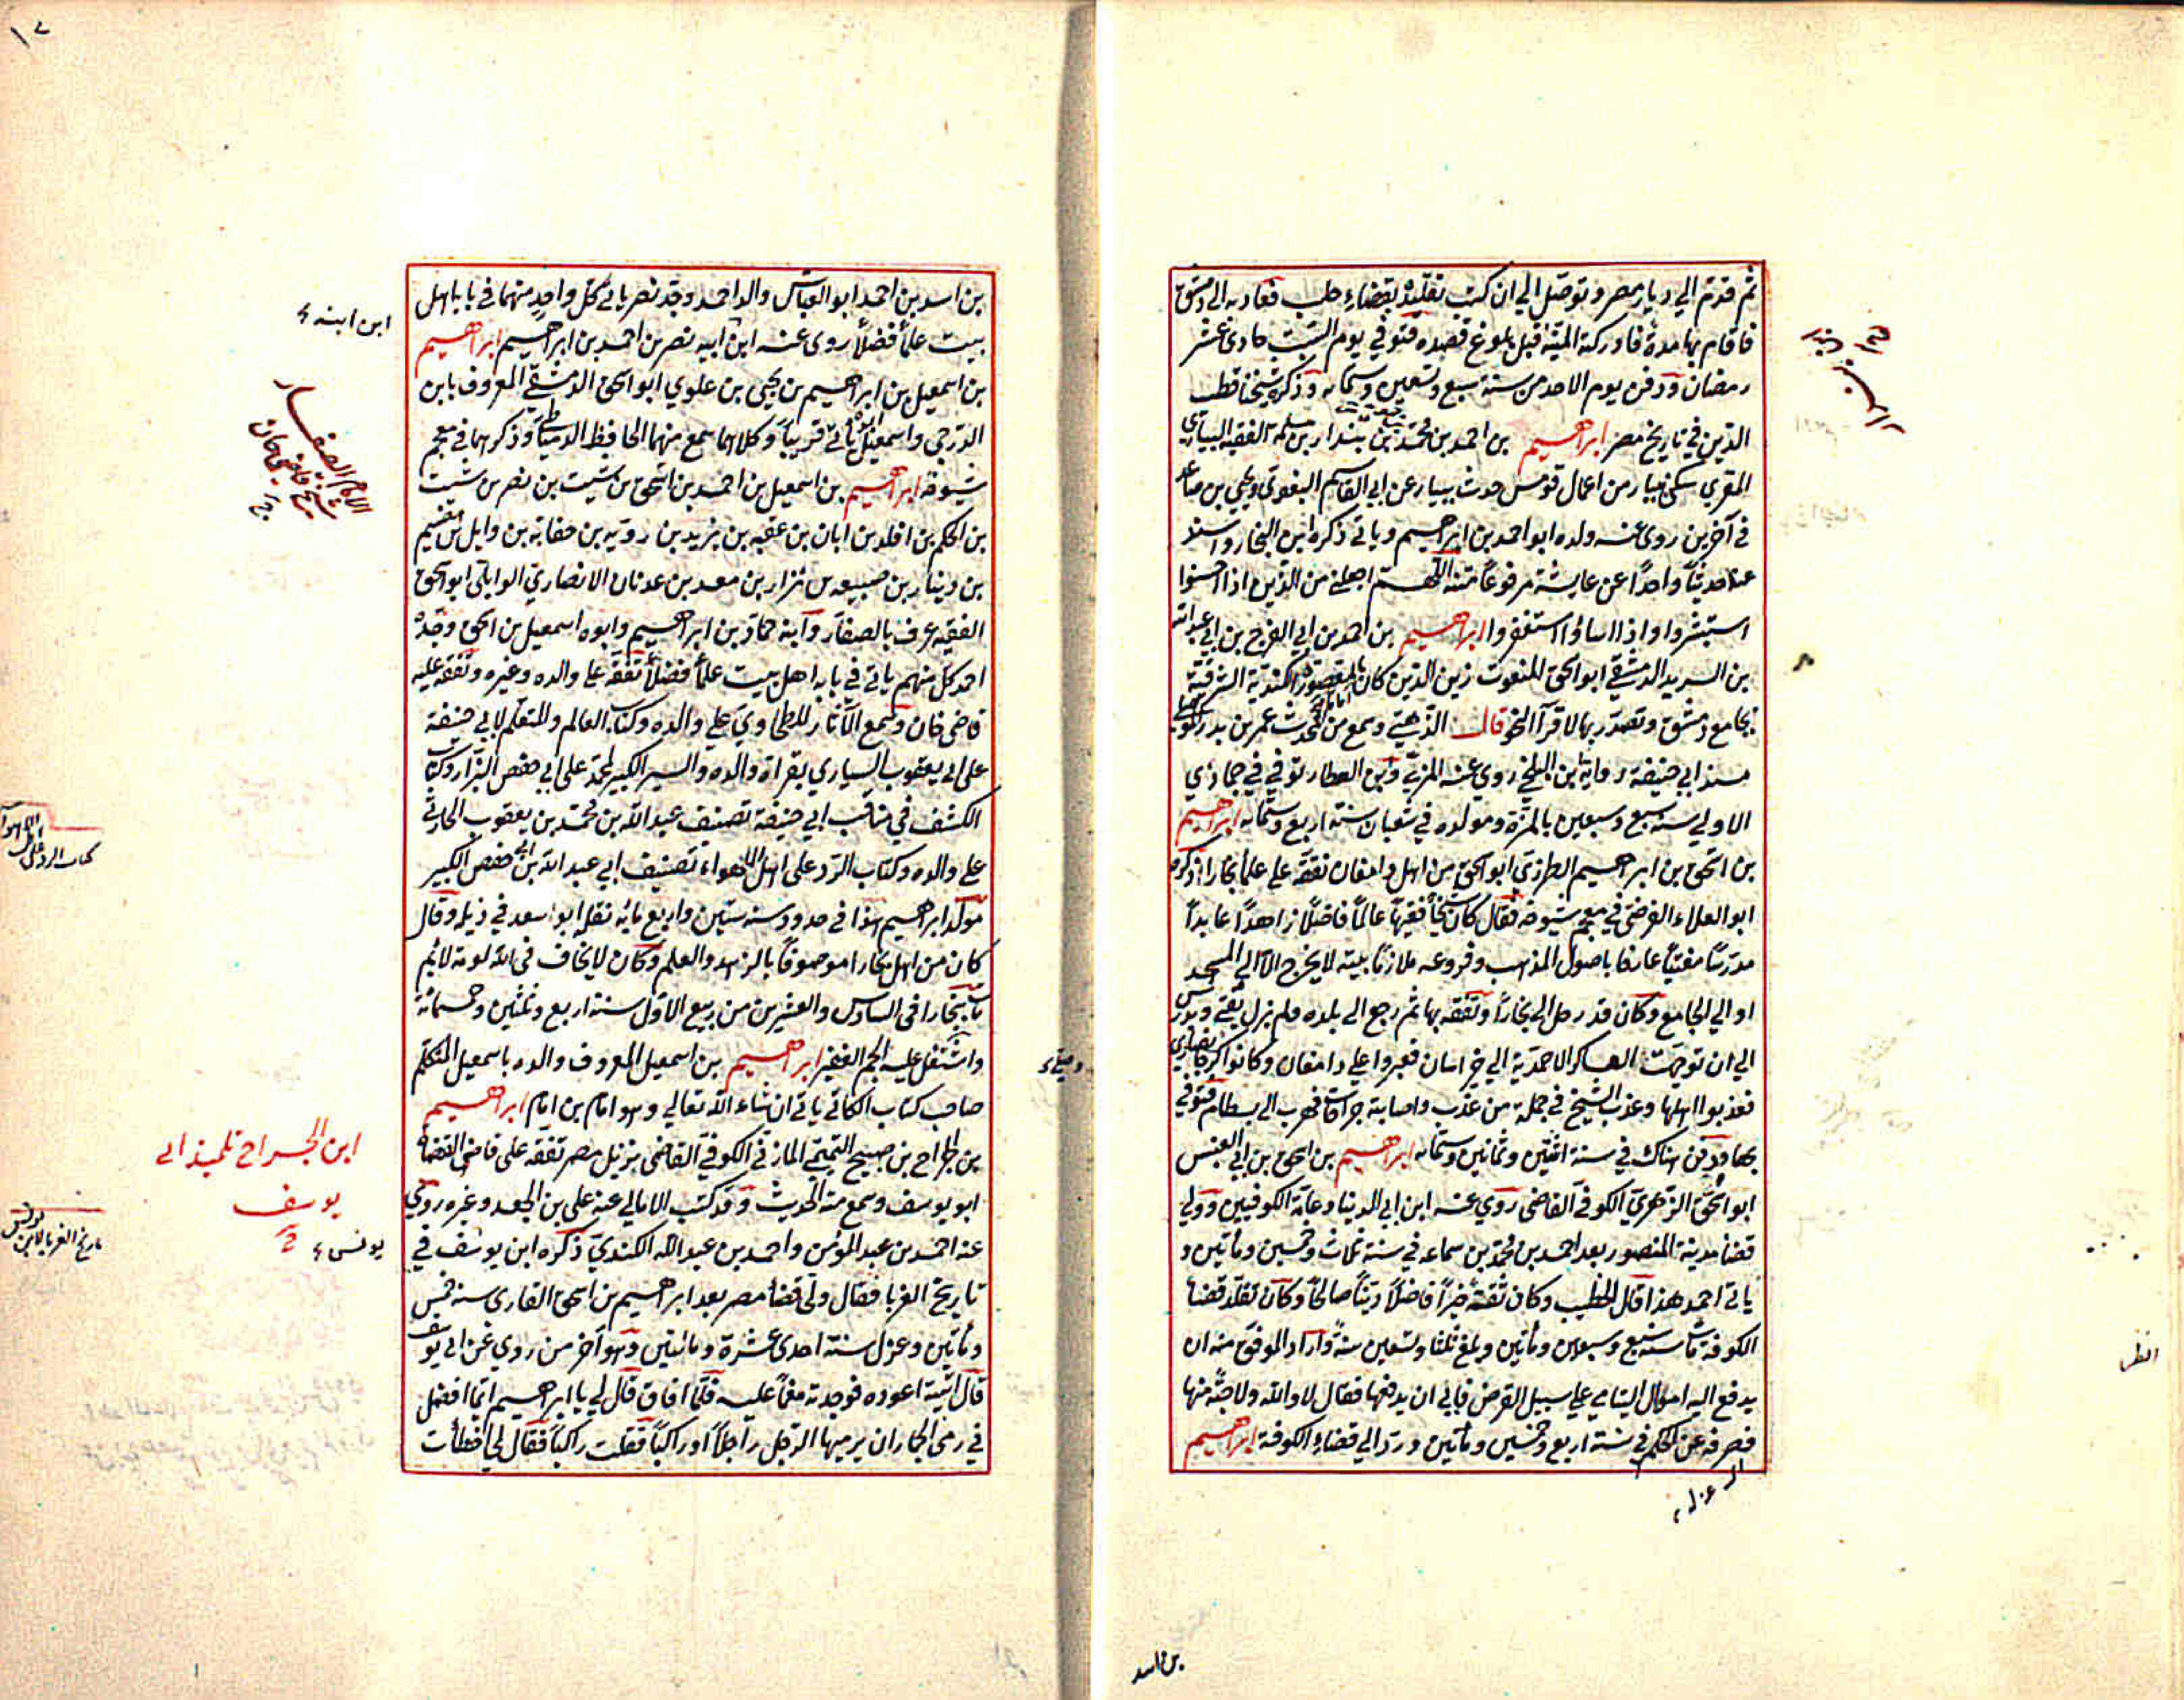 ثم قدم الي ديار مصر وتوصل الي ان كتب تقليده بقضاء حلب فعاد به الي دمشق
فاقام بها مدة فادركته المنية قبل بلوغ قصده فتوفي يوم السبت حادي عشر
رمضان ودفن يوم الاحد من سنة سبع وتسعين وستمائه وذكره شيخنا قطب
الدين في تاريخ مصر ابراهيم بن احمد بن محمد بن بندار بن مسلمه الفقيه البياري
المقري سكن بيار من اعمال قومس حدث ببيار عن ابي القاسم البغوي ويحيي بن صاعد
في آخرين روي عنه ولده ابو احمد بن ابراهيم وياتي ذكره ابن النجار واسند
عنه حديثاً واحداً عن عايشة مرفوعاً متنه اللهم اجعلني من الذين اذا احسنوا
استبشروا واذا اساؤا استغفروا ابراهيم بن احمد بن ابي الفرج بن ابي عبد الله
بن السديد الدمشقي ابو اسحق المنعوت زين الدين كان امام بالمقصورة الكندية الشرقية
بجامع دمشق وتصدر بها لاقرآ النحو قال الذهبي وسمع من المحدث عمر بن بدر الموصلي
مسند ابي حنيفة رواية ابن البلخي روي عنه المزي وابن العطار توفي في جمادي
الاولي سنه سبع وسبعين بالمزة ومولده في شعبان سنة اربع وستمائه ابراهيم
بن اسحق بن ابراهيم الطرزي ابو اسحق من اهل دامغان تفقه علي علماء بخارا ذكره
ابو العلاء الفرضي في معجم شيوخه فقال كان شيخاً فقيهاً عالماً فاضلاً زاهداً عابداً
مدرساً مفتياً عارفا باصول المذهب وفروعه ملازماً بيته لا يخرج الا الي المسجد
او الي الجامع وكان قد رحل الي بخارا وتفقه بها ثم رجع الي بلده ولم يزل يفتي ويدرس
الي ان توجهت العساكر الاحمدية الي خراسان فعبروا علي دامغان وكانوا كرجا نصاري
فعذبوا اهلها وعذب الشيخ في جملة من عذب واصابته جراحات فهرب الي بسطام فتوفي
بها ودفن هناك في سنة اثنتين وثمانين وستمائه ابراهيم بن اسحق بن ابي العنبس
ابو اسحق الزهري الكوفي القاضي روي عنه ابن ابي الدنيا وعامة الكوفيين وولي
قضاء مدينة المنصور بعد احمد بن محمد بن سماعه في سنة ثلاث وخمسين ومأتين و
ياتي احمد هذا قال الخطيب وكان ثقة خيراً فاضلاً ديناً صالحاً وكان تقلد قضا
الكوفة مات سنه سبع وسبعين ومأتين وبلغ ثلثا وتسعين سنة واراد الموفق منه ان
يدفع اليه اموال اليتامي علي سبيل القرض فابي ان يدفعها فقال لا والله ولا حبة منها
فصرفه عن الحكم في سنة اربع وخمسين ومأتين ورد الي قضاء الكوفة ابراهيم
بن اسد
بن اسد بن احمد ابو العباس والد احمد وجد نصر ياتي كل واحد منهما في بابه اهل
بيت علماً فضلاً روي عنه ابن ابيه نصر بن احمد بن ابراهيم ابراهيم
بن اسمعيل بن ابراهيم بن يحيي بن علوي ابو اسحق الدمشقي المعروف بابن
الدرجي واسمعيل ياتي قريباً وكلاهما سمع منهما الحافظ الدمياطي وذكرهما في معجم
شيوخه ابراهيم بن اسمعيل بن احمد بن اسحق بن شيت بن نصر بن شيت
بن الحكم بن افلد بن ابان بن عقبه بن يزيد بن روبة بن خفانة بن وايل بن هضيم
بن دينار بن ضبيعه بن نزار بن معد بن عدنان الانصاري الوايلي ابو اسحق
الفقيه عرف بالصفار وآبنه حماد بن ابراهيم وابوه اسمعيل بن اسحق وجده
احمد كل منهم ياتي في بابه اهل بيت علماً فضلاً تفقه علي والده وغيره وتفقه عليه
قاضي خان وسمع الآثار للطحاوي علي والده وكتاب العالم والمتعلم لابي حنيفة
علي ابي يعقوب السياري بقراة والده والسير الكبير لمحمد علي ابي حفص البزار وكتاب
الكشف في مناقب ابي حنيفة تصنيف عبد الله بن محمد بن يعقوب الحارثي
علي والده وكتاب الرد علي اهل الاهواء تصنيف ابي عبد الله بن ابي حفص الكبير
مولد ابراهيم هذا في حدود سنه ستين واربع مائه نقله ابو سعد في ذيله وقال
كان من اهل بخارا موصوفاً بالزهد والعلم وكان لا يخاف في الله لومة لائم
مات ببخارا في السادس والعشرين من ربيع الاول سنة اربع وثلثين وخمسمائة
واشتغل عليه الجم الغفير ابراهيم بن اسمعيل المعروف والده باسمعيل المتكلم
صاحب كتاب الكافي ياتي ان شاء الله تعالي وهو امام بن امام ابراهيم
بن الجراح بن صبيح التميمي المازني الكوفي القاضي نزيل مصر تفقه علي قاضي القضاة
ابو يوسف وسمع منه الحديث وقد كتب الامالي عنه علي بن الجعد وغيره روي
عنه احمد بن عبد المؤمن واحمد بن عبد الله الكندي ذكره ابن يوسف في
تاريخ الغربا فقال ولي قضاء مصر بعد ابراهيم بن اسحق القاري سنه خمس
ومأتين وعزل سنة احدي عشرة ومائتين وهو آخر من روي عن ابي يوسف
قال اتيته اعوده فوجدته مغماً عليه فلما افاق قال لي يا ابراهيم ايما افضل
في رمي الجمار ان يرميها الرجل راجلاً او راكباً فقلت راكباً فقال لي اخطأت
ابن ابنه
الامام الصفار
شيخ قاضي خان
كتاب الرد علي اهل الاهوآ
ابن الجراح تلميذ ابي
يوسف
يونس
تاريخ الغربا لابن يونس